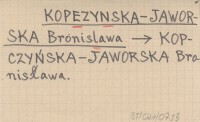 KOPEZYNSKA-JAWOR-
SKA Bronisława → KOP-
CZYŃSKA-JAWORSKA Bro
nisława.